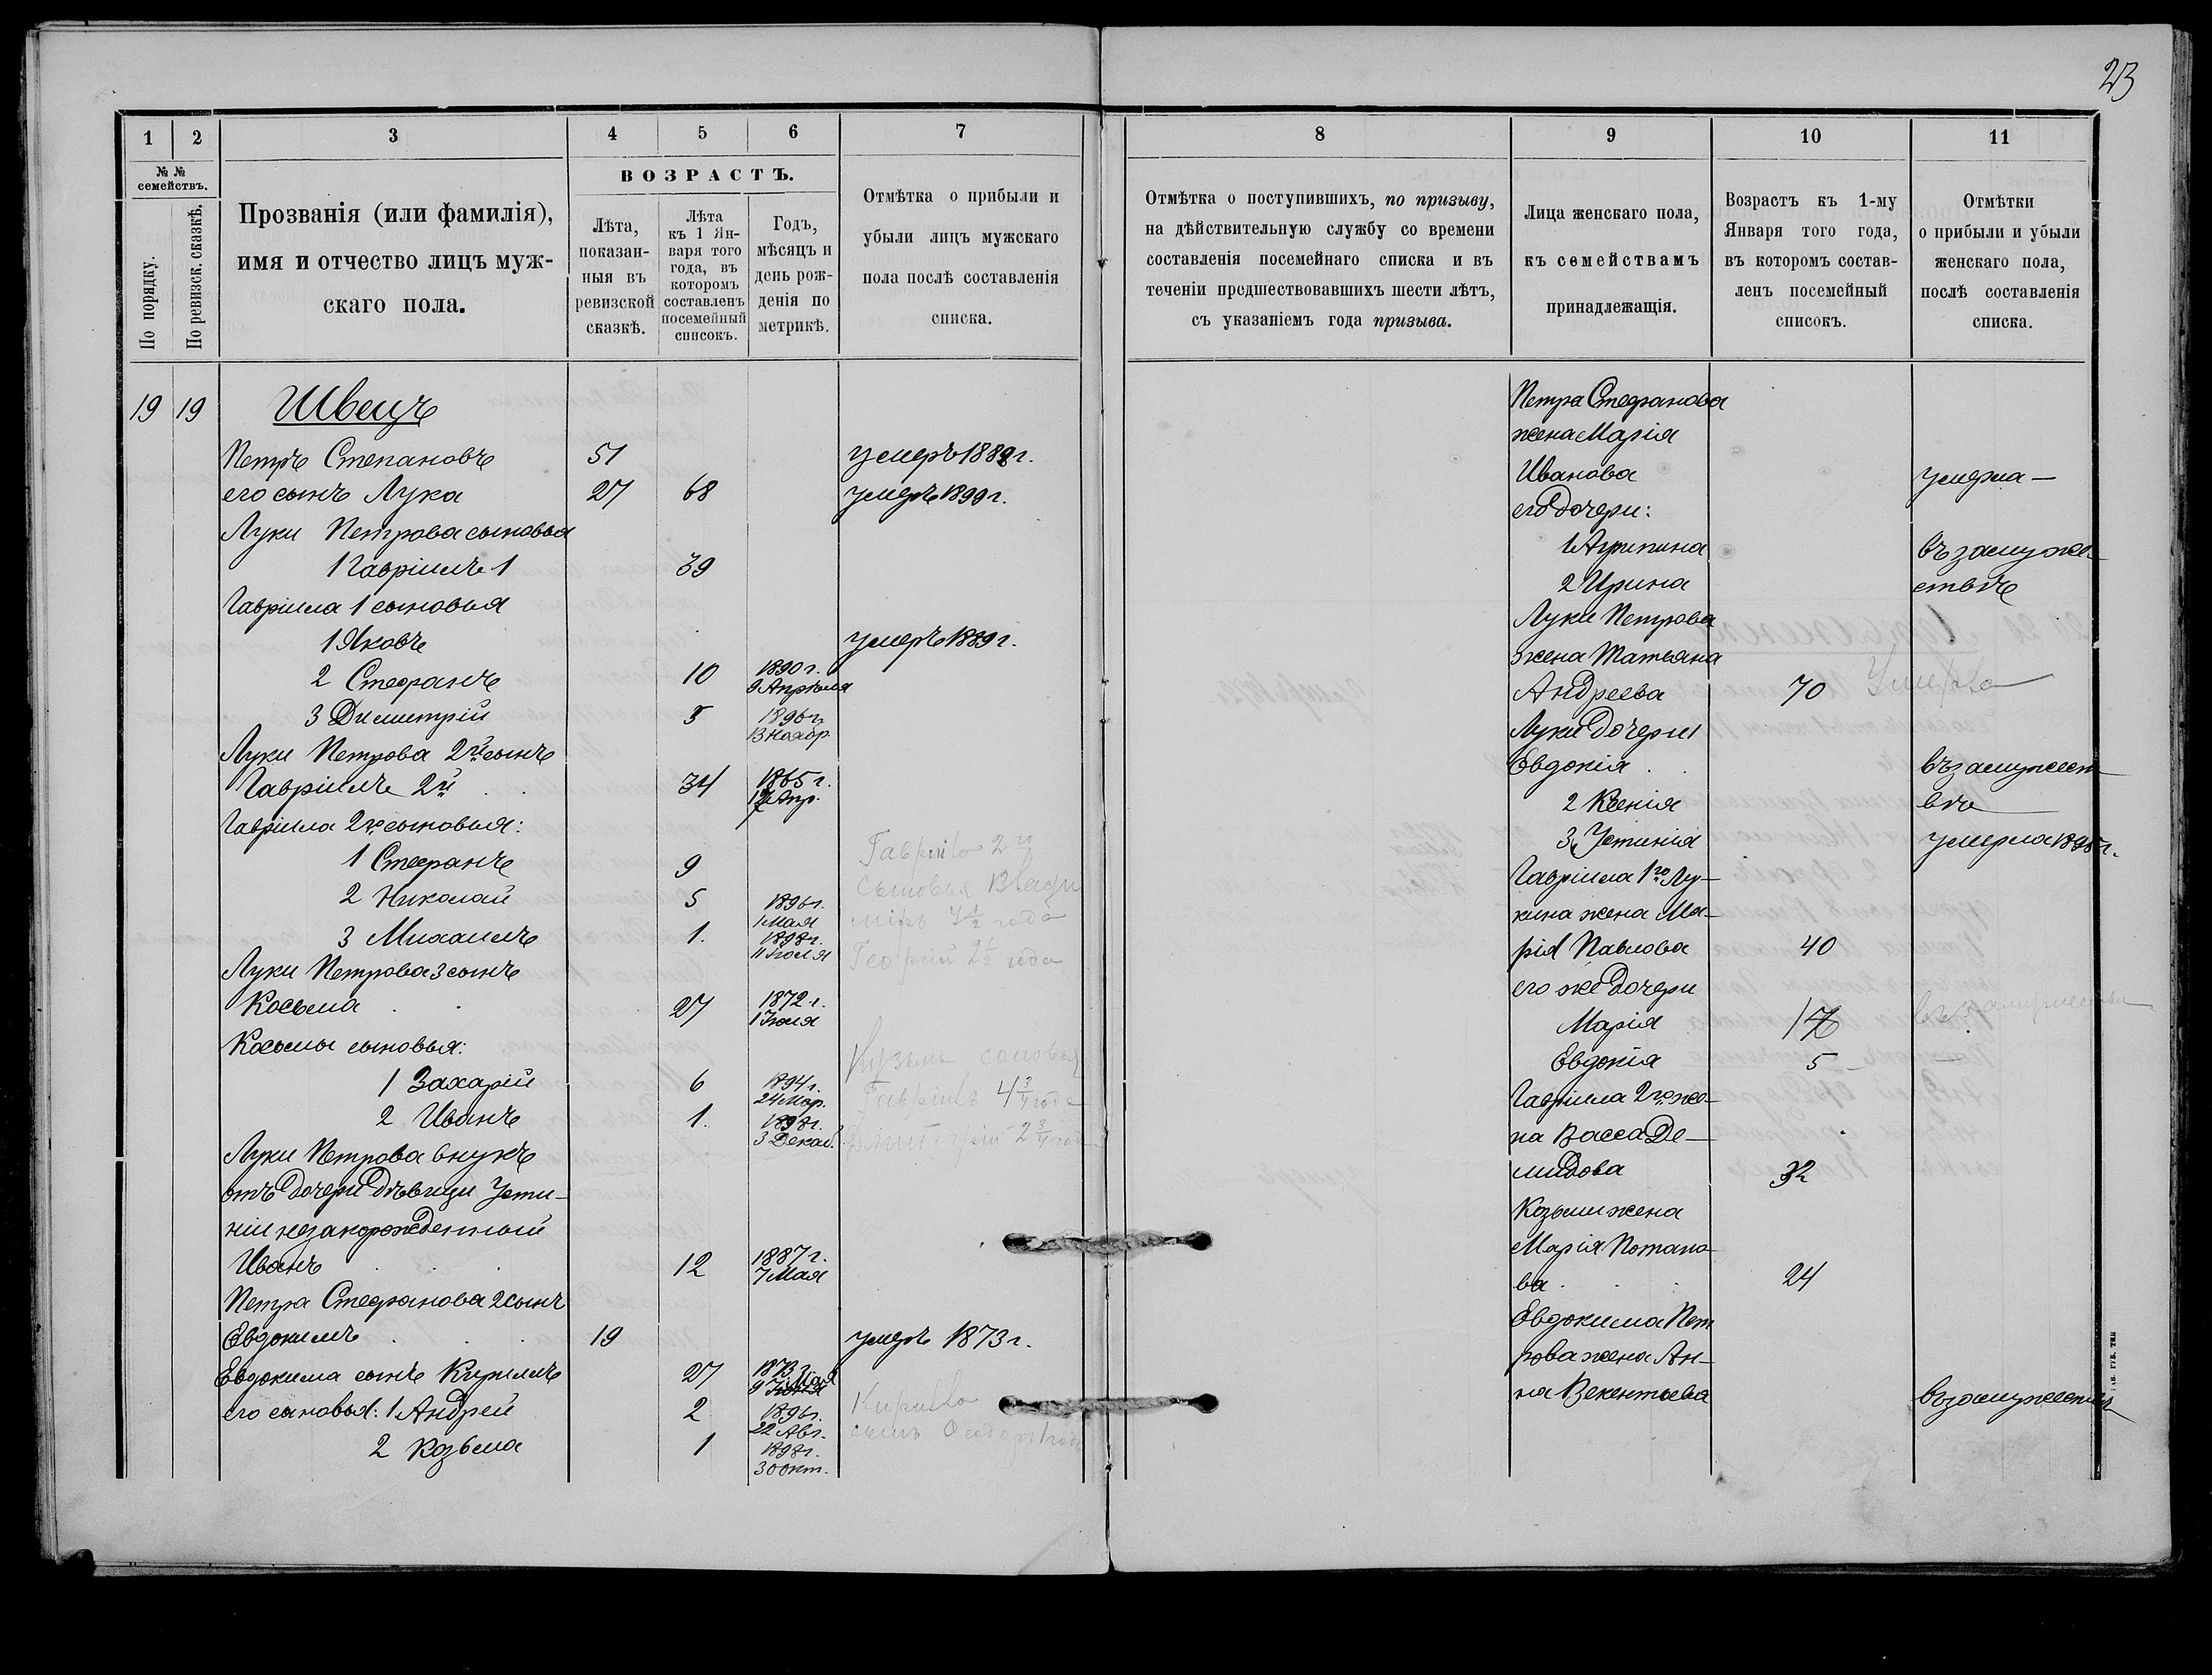 23
1
2
3
4
5
6
7
№ №
семействъ.
По порядку.
По ревизск. сказкѣ.
Прозванія (или фамилія),
имя и отчество лицъ муж-
скаго пола.
ВОЗРАСТЪ.
Лѣта,
показан-
ныя въ
ревизской
сказкѣ.
Лѣта
къ 1 Ян-
варя того
года, въ
которомъ
составленъ
посемейный
списокъ.
Годъ,
мѣсяцъ и
день рож-
денія по
метрикѣ.
Отмѣтка о прибыли и
убыли лицъ мужскаго
пола послѣ составленія
списка.
19 19 Швецъ
Петръ Степановъ 51 умеръ 1882 г.
его сынъ Лука 27 68 умеръ 1899 г.
Луки Петрова сыновья
1 Гавріилъ 1 39
Гавріила 1 сыновья
1 Яковъ умеръ 1889 г.
2 Стефанъ 10 1890 г.
9 Апрѣля
3 Димитрій 3 1896 г.
13 Нояр.
Луки Петрова 2й сынъ
Гавріилъ 2й 34 1865 г.
17 Апр.
Гавріила 2го сыновья:
1 Стефанъ 9
2 Николай 5 1896 г.
1 Мая
3 Михаилъ 1. 1898 г.
11 Іюля
Гавріила 2го
сыновья Влади
міръ 4½ года
Георгій 2½ года
Луки Петрова 3 сынъ
Косьма 27 1872 г.
1 Іюля
Косьмы сыновья:
1 Захарій 6 1894 г.
24 Мар.
2 Иванъ 1. 1898 г.
3 Декаб.
Кузьмы сыновья
Гавріилъ 4¾ года
Димитрій 2¾ год
Луки Петрова внукъ
отъ дочери дѣвицы Усти-
ніи незакорожденный
Иванъ 12 1887 г.
7 Мая
Петра Стефанова 2 сынъ
Евдокимъ 19 умеръ 1873 г.
Евдокима сынъ Кириллъ 27 1873 г.
9 Мая
его сыновья: 1 Андрей 2 1896 г.
22 Авг.
2 Козьма 1 1898 г.
30 окт.
Кирилла
сынъ Ѳеодоръ 1 годъ
8
9
10
11
Отмѣтка о поступившихъ, по призыву,
на дѣйствительную службу со времени
составленія посемейнаго списка и въ
теченіи предшествовавшихъ шести лѣтъ,
съ указаніемъ года призыва.
Лица женскаго пола,
къ семействамъ
принадлежащія.
Возрастъ къ 1-му
Января того года,
въ которомъ состав-
ленъ посемейный
списокъ.
Отмѣтки
о прибыли и убыли
женскаго пола,
послѣ составленія
списка.
Петра Стефанова
жена Марія
Иванова умерла —
его дочери:
1 Агрипина въ замуже-
2 Ирина ствѣ
Луки Петрова
жена Татьяна
Андреева 70 Умерла
Луки дочери 1
Евдокія въ замужест
2 Ксенія вѣ
3 Устинія умерла 1898 г.
Гавріила 1го Лу-
кина жена Ма-
рія Павлова 40
его же дочери
Марія 17 въ замужествѣ
Евдокія 5
Гавріила 2го же-
на Васса Де-
мидова 32
Козьмы жена
Марія Потапо-
ва 24
Евдокима Пет
рова жена Ан-
на Векентьева въ замужествѣ